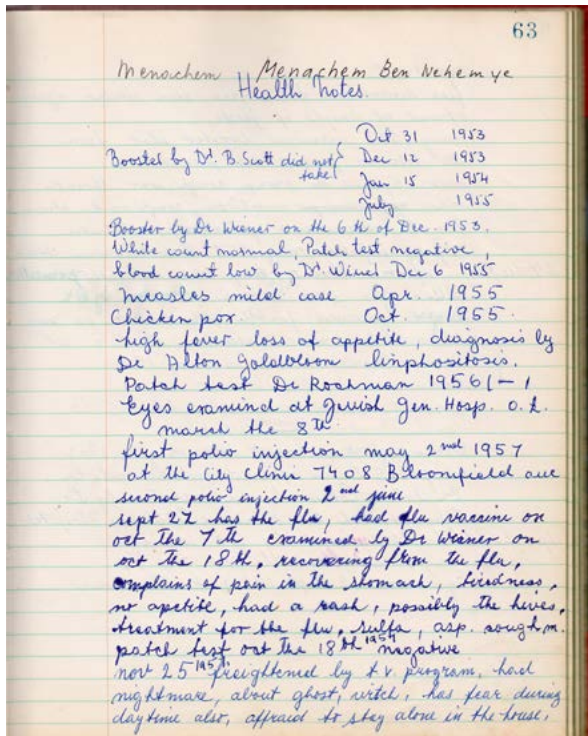 63
Menachem Menachem Ben Nehemye
Health Notes.
Oct 31 1953
Booster by Dr. B. Scott did not Dec 12 1953
take Jan 15 1954
July 1955
Booster by Dr Wiener on the 6th of Dec. 1953.
White count normal, Patch test negative,
blood count low by Dr. Dec 6 1955
Measles mild case Apr. 1955
Chicken pox. Oct. 1955.
high fever loss of appetite, diagnosis by
Dr Alton Goldbloom linphositosis.
Patch test Dr Rochman 1956 (-)
Eyes examind at Jewish Gen. Hosp. o.k.
march the 8th
first polio injection may 2nd 1957
at the City Clinic 7408 Bloomfield ave
second polio injection 2nd june
sept 27 has the flu, had flu vaccine on
oct the 7th examined by Dr Wiener on
oct the 18th, recovering from the flu,
complains of pain in the stomach, tiredness,
no apetite, had a rash, possibly the hives,
treatment for the flu, sulfa, asp. cough m.
patch test oct the 18th 1957 negative
nov 25 1957 freightened by t.v. program, had
nightmare, about ghost, witch, has fear during
daytime also, affraid to stay alone in the house,